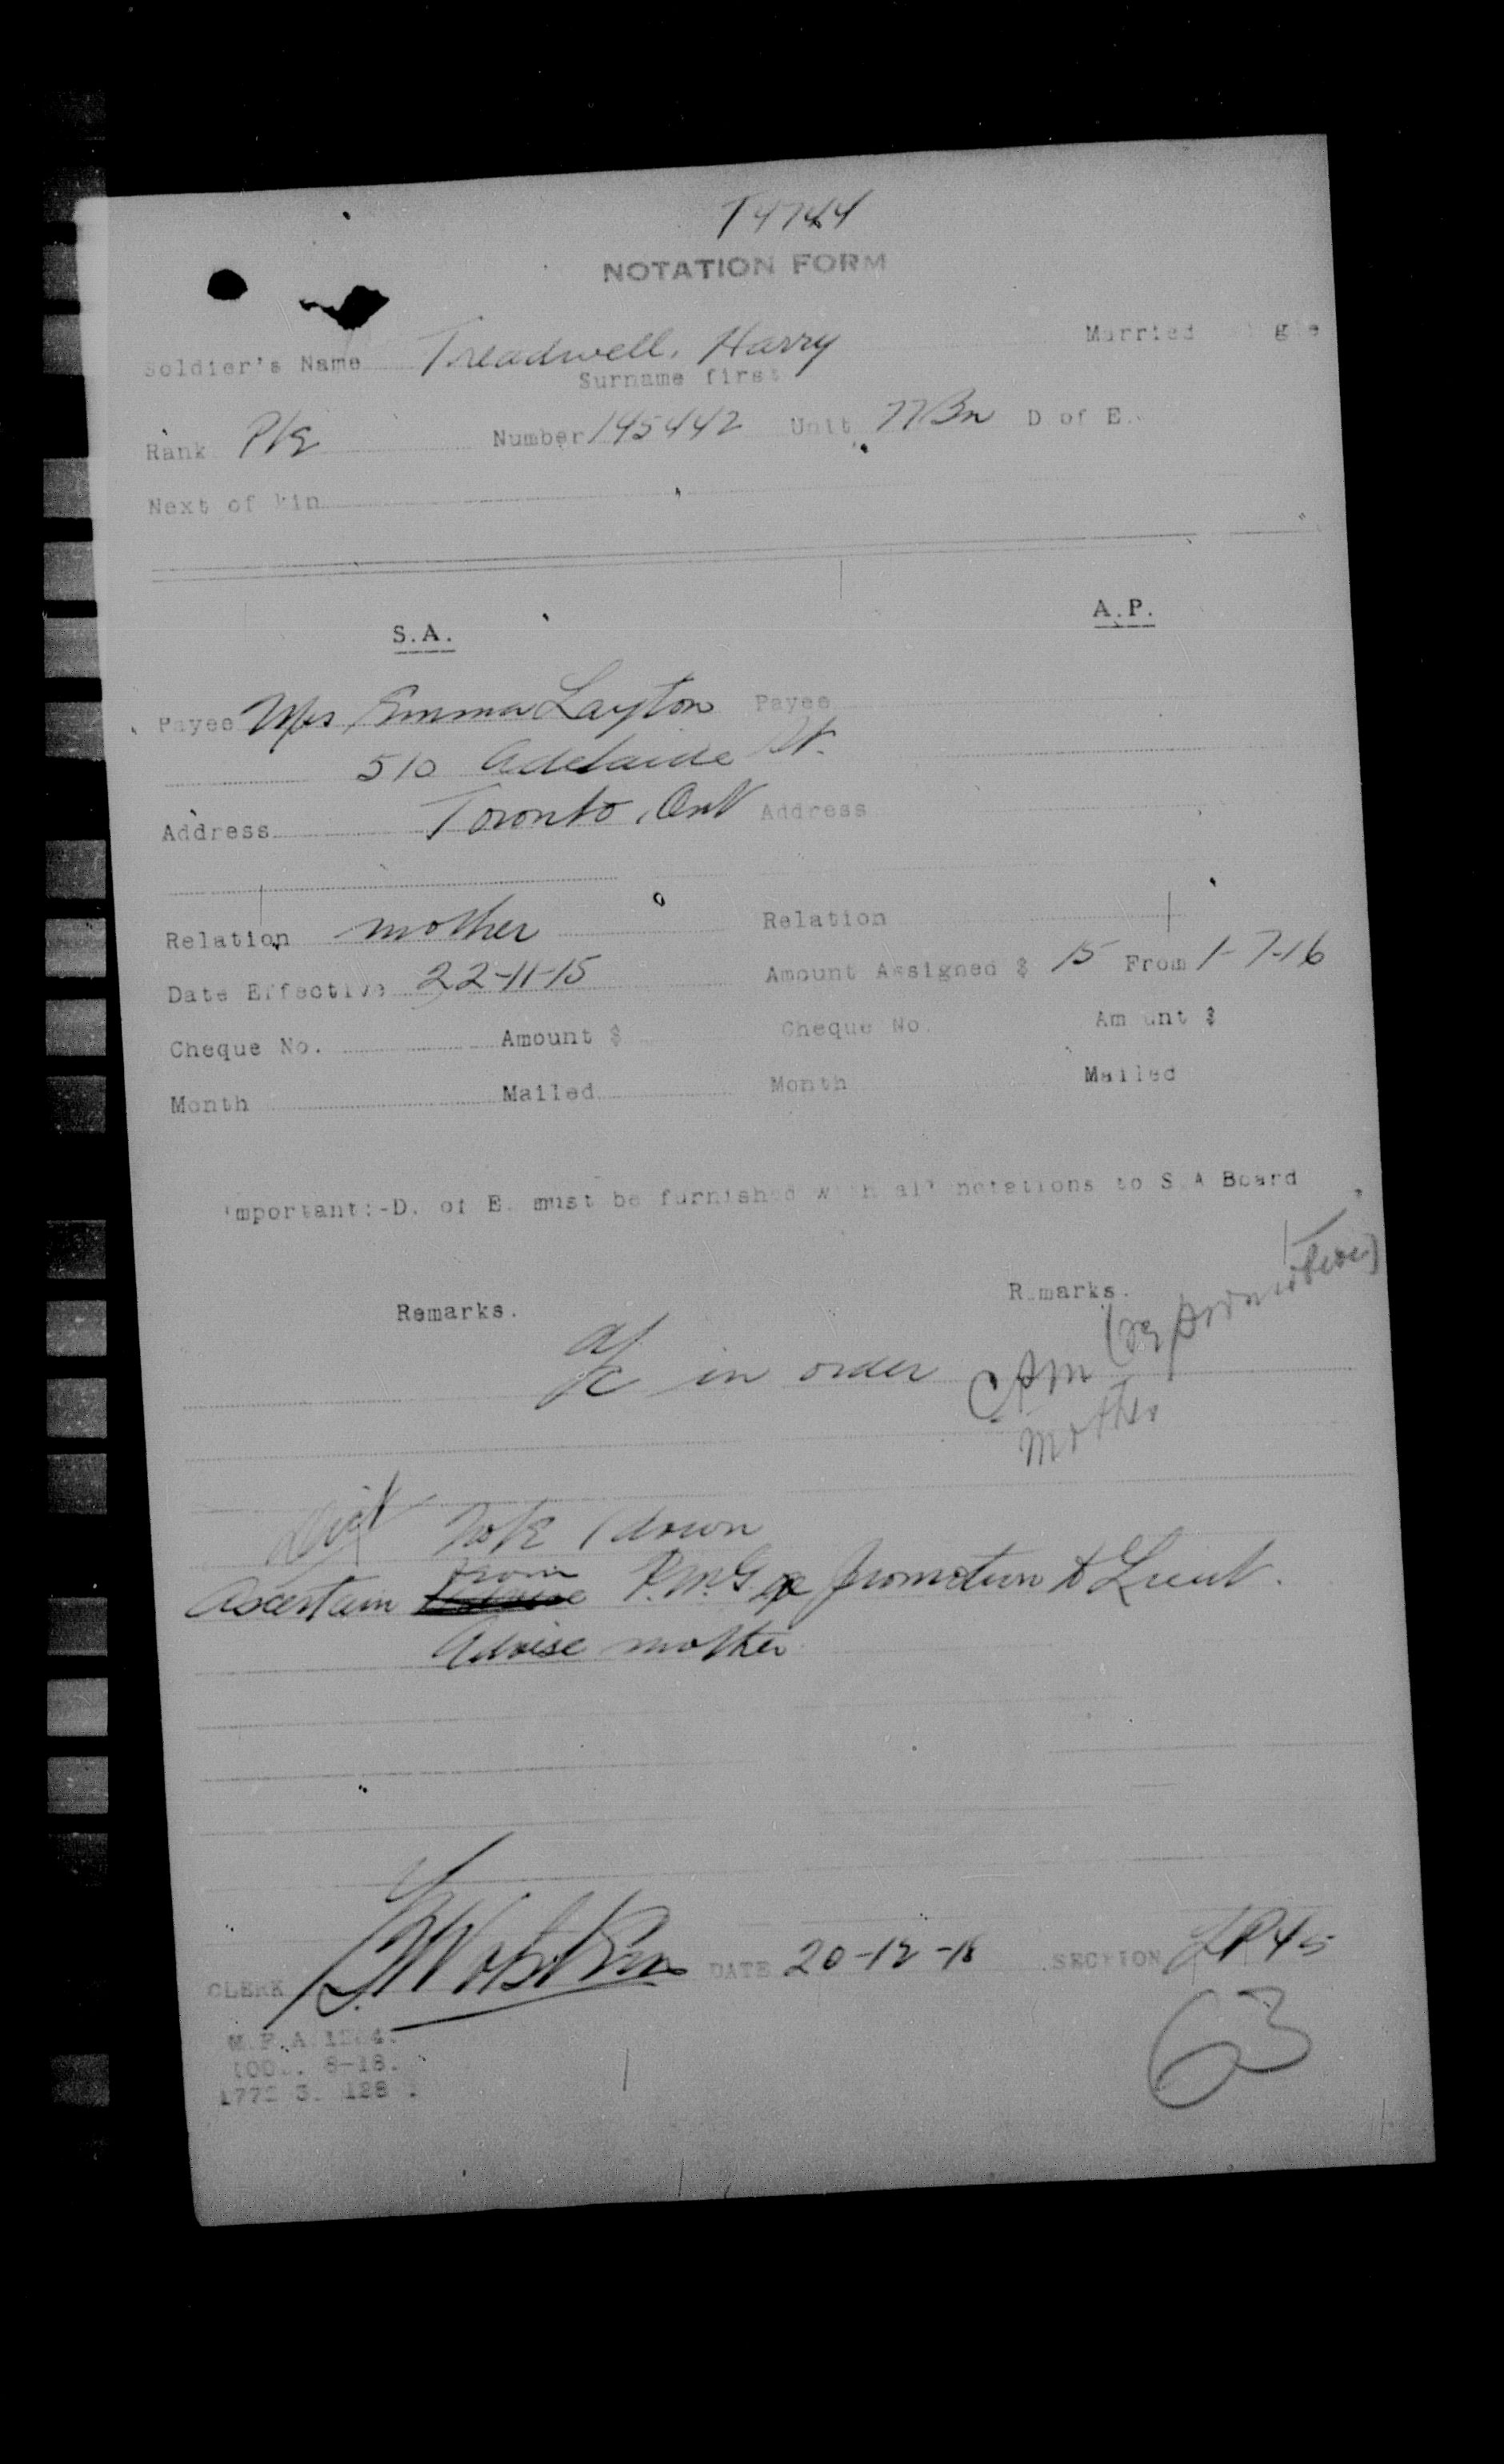 T4744
NOTATION FORM
Soldier's Name Treadwell, Harry Married
Surname first
Rank Pte Number 145442 Unit 77Bn D of E.
Next of kin
S.A. A.P.
Payee Mrs Emma Layton Payee
510 Adelaide St.
Address Toronto, Ont Address
Relation mother Relation
Date Effective 22-11-15 Amount Assigned $ 15 From 1-7-16
Cheque No. Amount $ Cheque No. Amount $
Month Mailed Month Mailed
Important:-D. of E. must be furnished with all notations to S.A Board
Remarks. Remarks.
a/c in order
mother
Note
Ascertain from P.M.G. promotion to Lieut.
Advise mother
CLERK DATE 20-12-18 SECTION
63